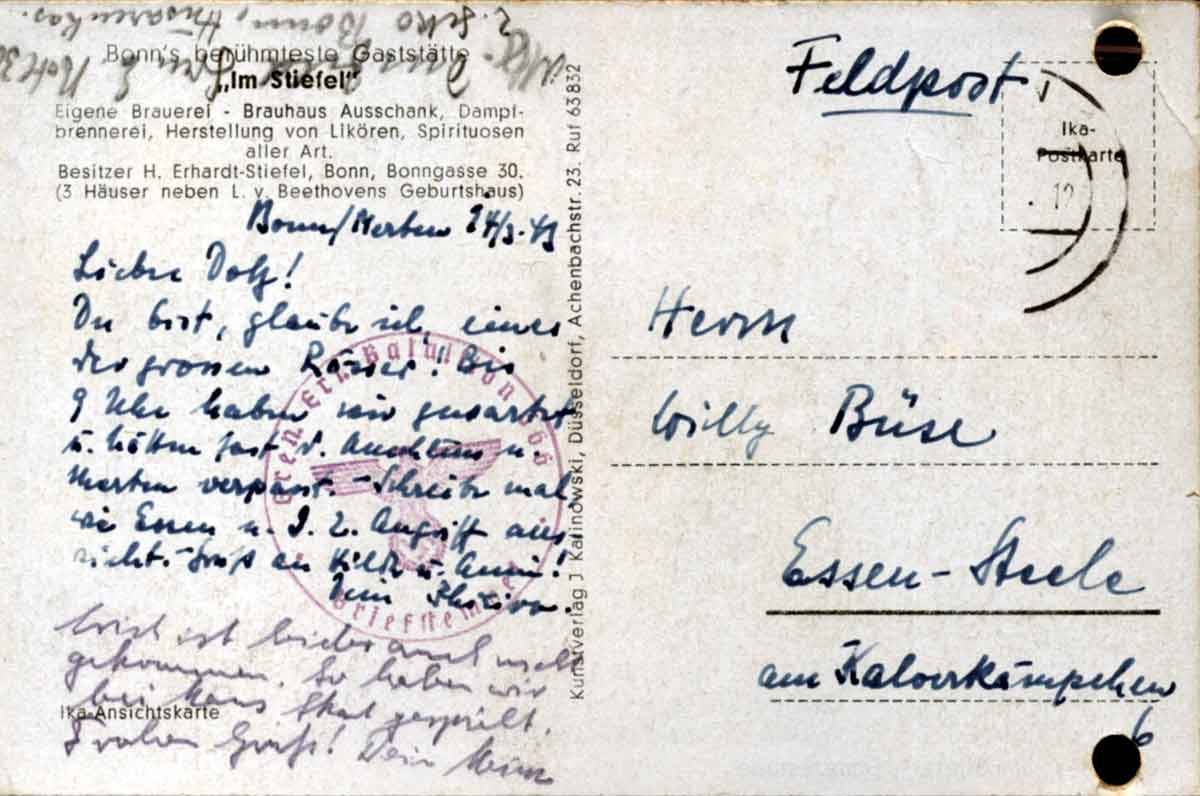 2. Gesko Bonn, Husarenkas.
Bonn's berühmteste Gaststätte
„Im Stiefel"
Eigene Brauerei - Brauhaus Ausschank, Dampf-
brennerei, Herstellung von Likören, Spirituosen
aller Art.
Besitzer H. Erhardt-Stiefel, Bonn, Bonngasse 30.
(3 Häuser neben L. v. Beethovens Geburtshaus)
Bonn/Merten 24/3.43
Lieber Dolf!
Du bist, glaube ich, eines
der grossen Rässer! Bis
9 Uhr haben wir gewartet
u. hätten fast d. Anschluss n.
Merten verpasst. - Schreibe mal
wie Essen n. d. 2. Angriff aus
sieht. - Gruß an Hilde u. Anni!
Dein
ist leider auch nicht
gekommen. So haben wir
bei Skat gespielt.
Frohen Gruß! Dein
Ika-Ansichtskarte
Gren. Ers. Bataillon
Briefstempel
Kunstverlag J Kalinowski, Düsseldorf, Achenbachstr. 23. Ruf 63832
Feldpost
Ika-
Postkarte
12
Herrn
Willy Büse
Essen-Steele
am Kalverkämpchen
6